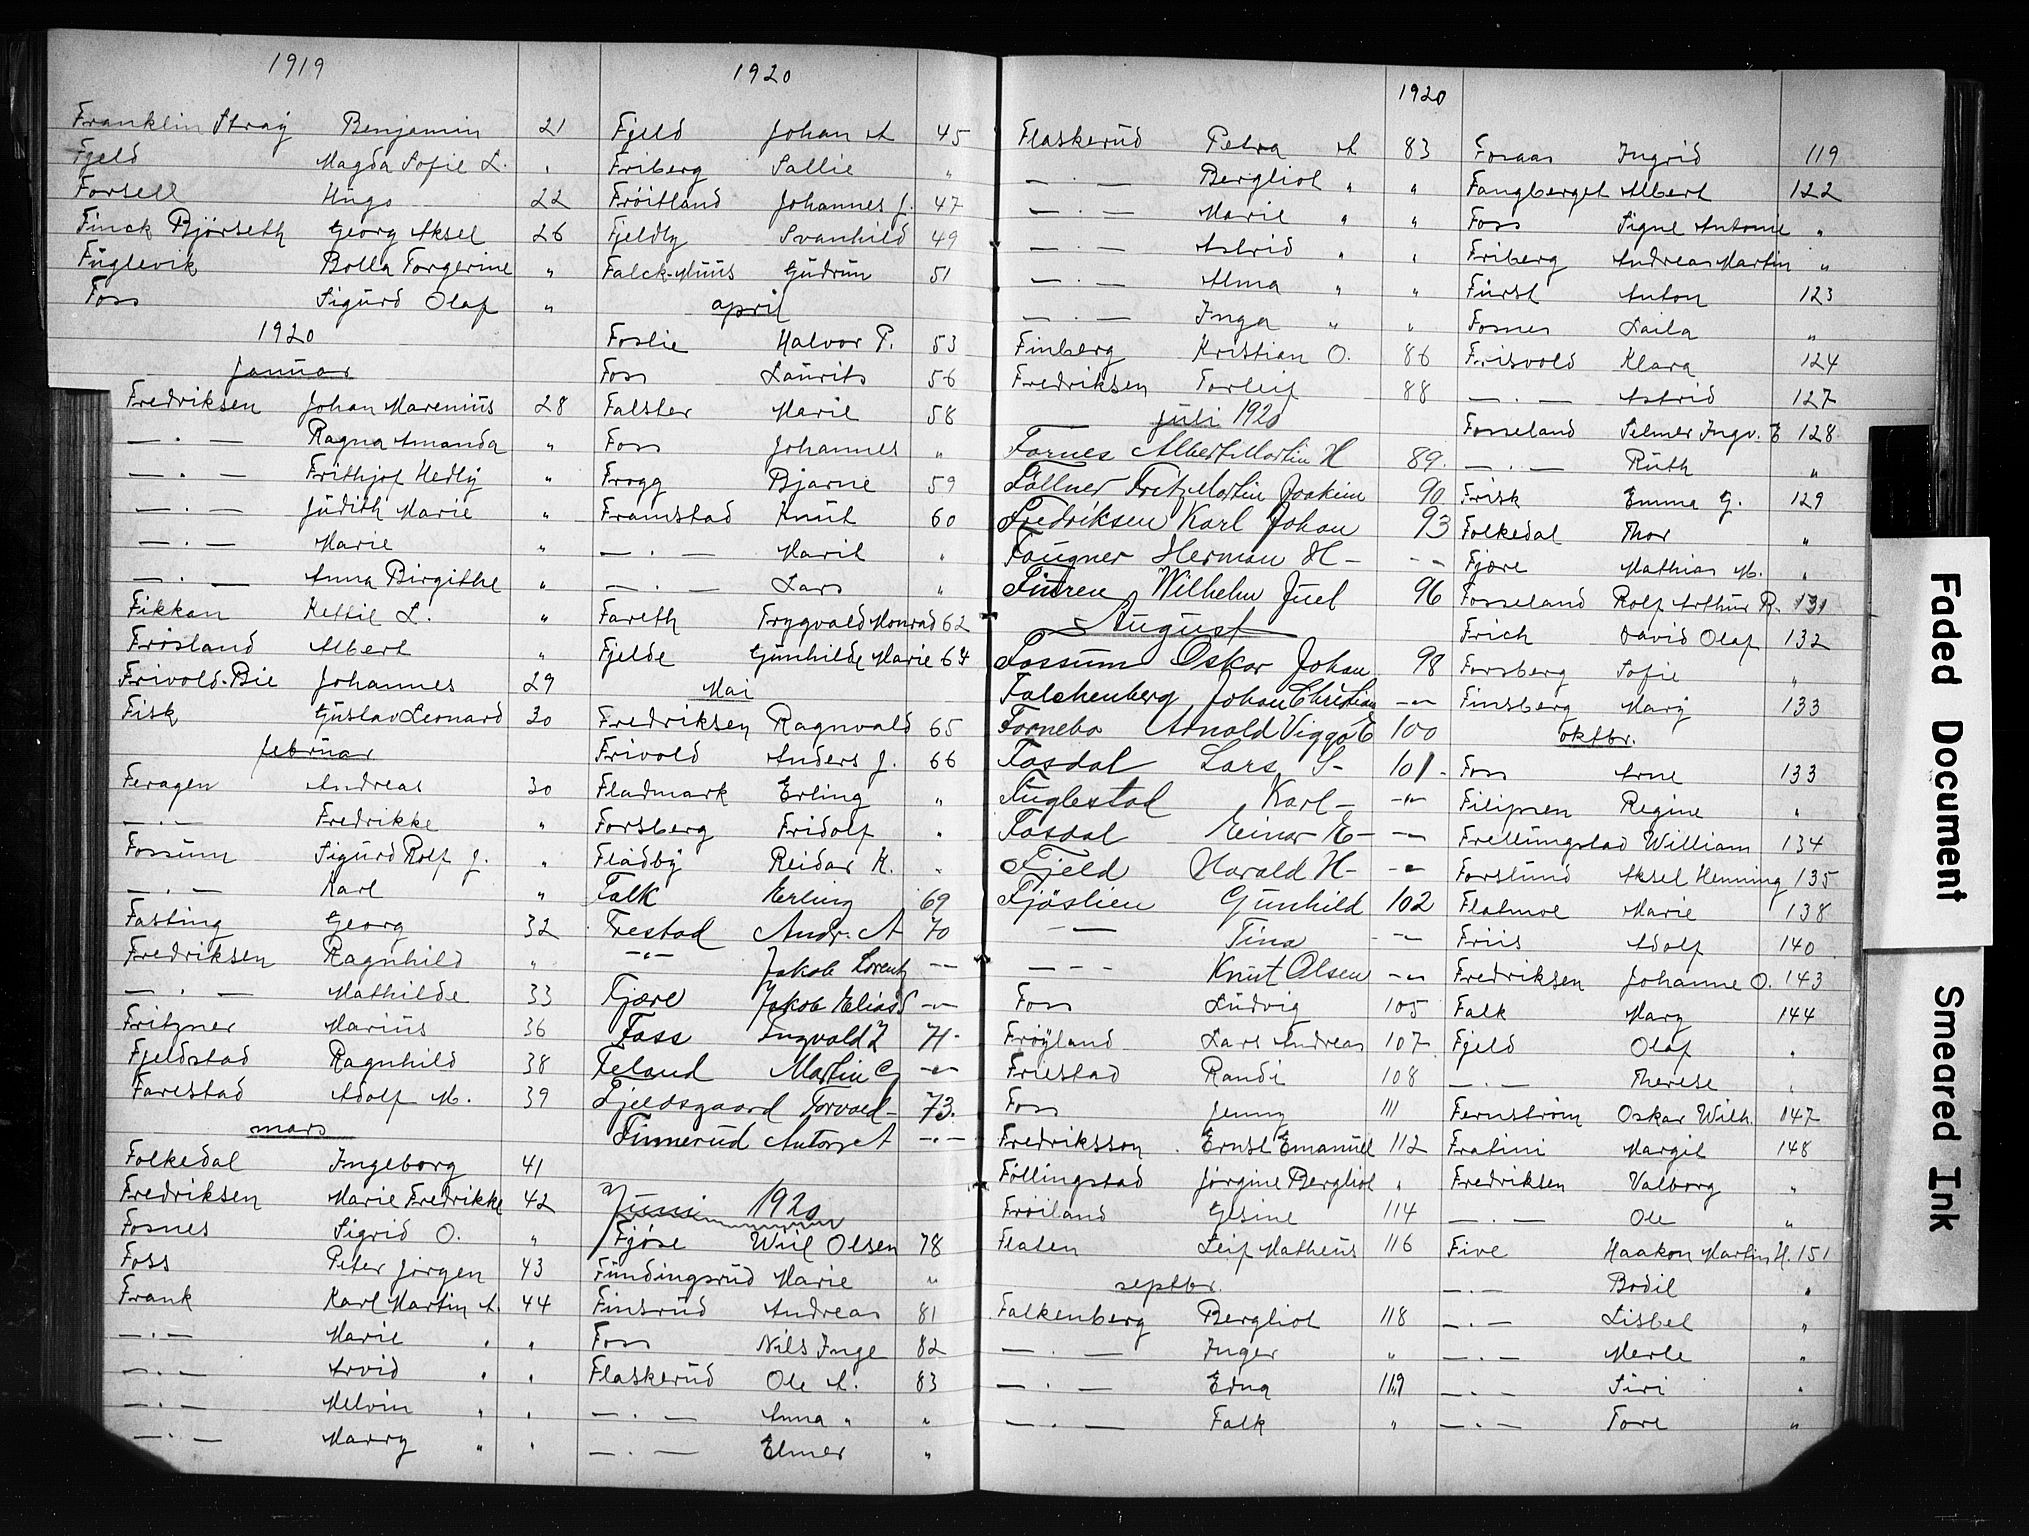 1919
Franklin Straij Benjamin 21
Fjeld Magda Sofie L. "
Forsell Hugo 22
Finck Bjørseth Georg Aksel 26
Fuglevik Bolla Torgerine "
Foss Sigurd Olaf "
1920
januar
Fredriksen Johan Marenius 28
— . — Ragna Amanda "
— . — Frithjof Hedly "
— . — Judith Marie "
— . — Marie "
— . — Anna Birgithe "
Fikkan Kettil L. "
Frøsland Albert "
Frivold-Bie Johannes 29
Fisk Gustav Leonard 30
februar
Feragen Andreas 30
— . — Fredrikke "
Fossum Sigurd Rolf J. "
— . — Karl "
Fasting Georg 32
Fredriksen Ragnhild "
— . — Mathilde 33
Fritzner Marius 36
Fjeldstad Ragnhild 38
Farestad Adolf M. 39
mars
Folkedal Ingeborg 41
Fredriksen Marie Fredrikke 42
Fosnes Sigrid O. "
Foss Peter Jørgen 43
Frank Karl Martin A. 44
— . — Marie " "
— . — Arvid " "
— . — Melvin " "
— . — Marry " "
1920
Fjeld Johan A 45
Friberg Sallie "
Frøitland Johannes J. 47
Fjeldly Svanhild 49
Falck-Muus Gudrun 51
april
Foslie Halvor P. 53
Foss Laurits 56
Falster Marie 58
Foss Johannes "
Frogg Bjarne 59
Framstad Knut 60
— . — Marit "
— . — Lars "
Fareth Trygvald Monrad 62
Fjelde Gunhilde Marie 64
Mai
Fredriksen Ragnvald 65
Frivold Anders J. 66
Fladmark Erling "
Forsberg Fridolf "
Fladby Reidar K. "
Falk Erling 69
Frestad Andr. A 70
—"— Jakob Lorentz —
Fjære Jakob Elias S —"—
Foss Ingvald I 71
Feland Martin G —"—
Fjeldsgaard Torvald 73.
Finnerud Anton A —"—
Juni 1920
Fjøse Wiil Olsen 78
Fundingsrud Marie "
Finsrud Andreas 81
Foss Nils Inge 82
Flaskerud Ole A. 83
— . — Anna " "
— . — Elmer "
1920
Flaskerud Petra A 83
— . — Bergliot " "
— . — Marie " "
— . — Astrid " "
— . — Alma " "
— . — Inga " "
Finberg Kristian O. 86
Fredriksen Torleif 88
juli 1920
Fornes Albert Martin H 89.
Fallner Fritz Martin Joakim 90
Fredriksen Karl Johan 93
Faugner Herman H - - -
Furen Wilhelm Juel 96
August
Fossum Oskar Johan 98
Falchenberg Johan Christian —"—
Fornebo Arnold Viggo E 100
Fosdal Lars S- 101-
Fuglestad Karl- —"—
Fosdal Einar E- —"—
Fjeld Harald H- —"—
Fjøslien Gunhild 102
— — Tina —"—
— — — Knut Olsen —"—
Foss Ludvig 105
Frøyland Lars Andreas 107
Friestad Randi 108
Foss Jenny 111
Fredriksson Ernst Emanuel 112
Føllingstad Jørgine Bergliot "
Frøiland Gesine 114
Flaten Leif Matheus 116
septbr.
Falkenberg Bergliot 118
— . — Inger "
— . — Edna 119
— . — Falk "
Fosaas Ingrid 119
Fangberget Albert 122
Foss Signe Antonie "
Friberg Andreas Martin "
Fürst Anton 123
Fosnes Laila "
Frisvold Klara 124
— . — Astrid 127
Fosseland Selmer Ingv. E 128
— . — Ruth "
Frisk Emma G. 129
Folkedal Thor "
Fjære Mathias M. "
Fosseland Rolf Arthur R. 131
Frich David Olaf 132
Forsberg Sofie "
Finsberg Mary 133
oktbr.
Foss Arne 133
Filipsen Regine "
Frellumstad William 134
Forslund Aksel Henning 135
Flatmoe Marie 138
Friis Adolf 140
Fredriksen Johanne O. 143
Falk Mary 144
Fjeld Olaf "
— . — Therese "
Fernstrøm Oskar Wilh. 147
Fratini Margit 148
Fredriksen Valborg "
— . — Ole "
Five Haakon Martin H. 151
— . — Bodil "
— . — Lisbet "
— . — Merle "
— . — Siri "
— . — Tore "
Faded Document
Smeared Ink